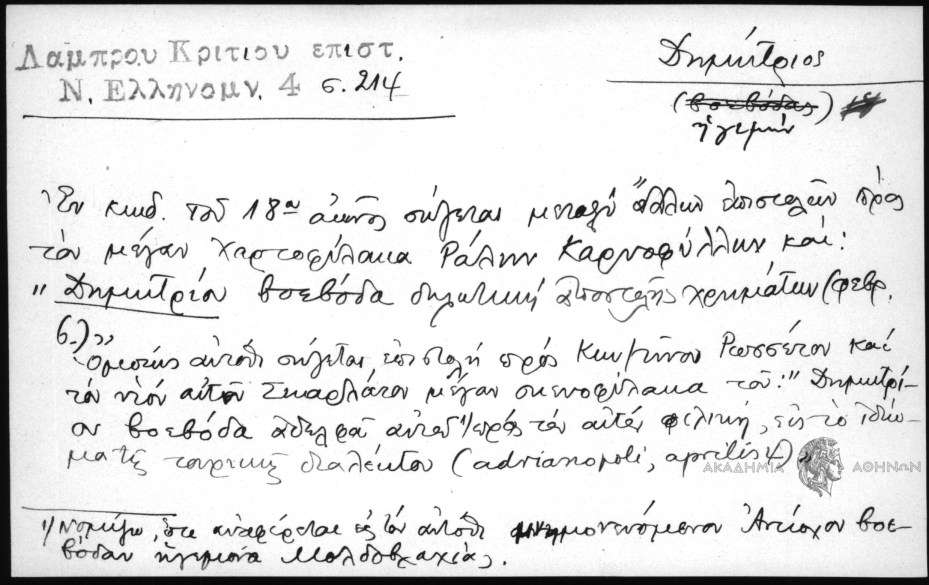 Λαμπρου Κριτιου επιστ.
Ν. Ελληνομν. 4 σ. 214
Δημήτριος
(βοεβόδας)
ἡγεμών
Ἐν κωδ. τοῦ 18ου αἰῶνος σῴζεται μεταξὺ ἄλλων ἐπιστολῶν πρὸς
τὸν μέγαν Χαρτοφύλακα Ράλην Καρυοφύλλην καὶ:
"Δημητρίου βοεβόδα δηλωτικὴ ἀποστολῆς χρημάτων (φεβρ.
6.)"
Ὁμοίως αὐτόθι σῴζεται ἐπιστολὴ πρὸς Κων/τῖνον Ρωσσέτον καὶ
τὸν υἱὸν αὐτοῦ Σκαρλάτον μέγαν σκευοφύλακα τοῦ: "Δημητρί-
ου βοεβόδα ἀδελφοῦ αὐτοῦ 1/ πρὸς τὸν αὐτὸν φιλική, εἰς τὸ ἰδίω-
μα τῆς τουρκικῆς διαλέκτου (adrianopoli, aprilis 4)"
ΑΚΑΔΗΜΙΑ ΑΘΗΝΩΝ
1/ Νομίζω, ὅτι ἀναφέρεται εἰς τὸν αὐτόθι μνημονευόμενον Ἀντίοχον βοε-
βόδαν ἡγεμόνα Μολδοβλαχίας.